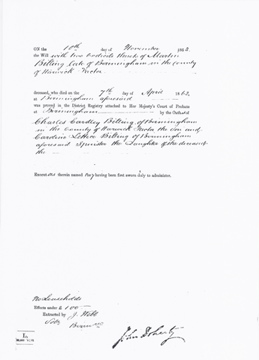 On the 10th day of November 1863
the Will with two Codicils thereto of Martin
Billing late of Birmingham in the county
of Warwick
deceased, who died on the 7th day of April 1863
at Birmingham aforesaid
was proved in the District Registry attached to Her Majesty's Court of Probate
at Birmingham by the Oaths of
Charles Cardley Billing of Birmingham
in the County of Warwick the Son and
Caroline Billing of Birmingham
aforesaid Spinster the Daughter of the deceased
the
Executors therein named they having been first sworn duly to administer.
No Leaseholds
Effects under £
Extracted by J.
John Doherty